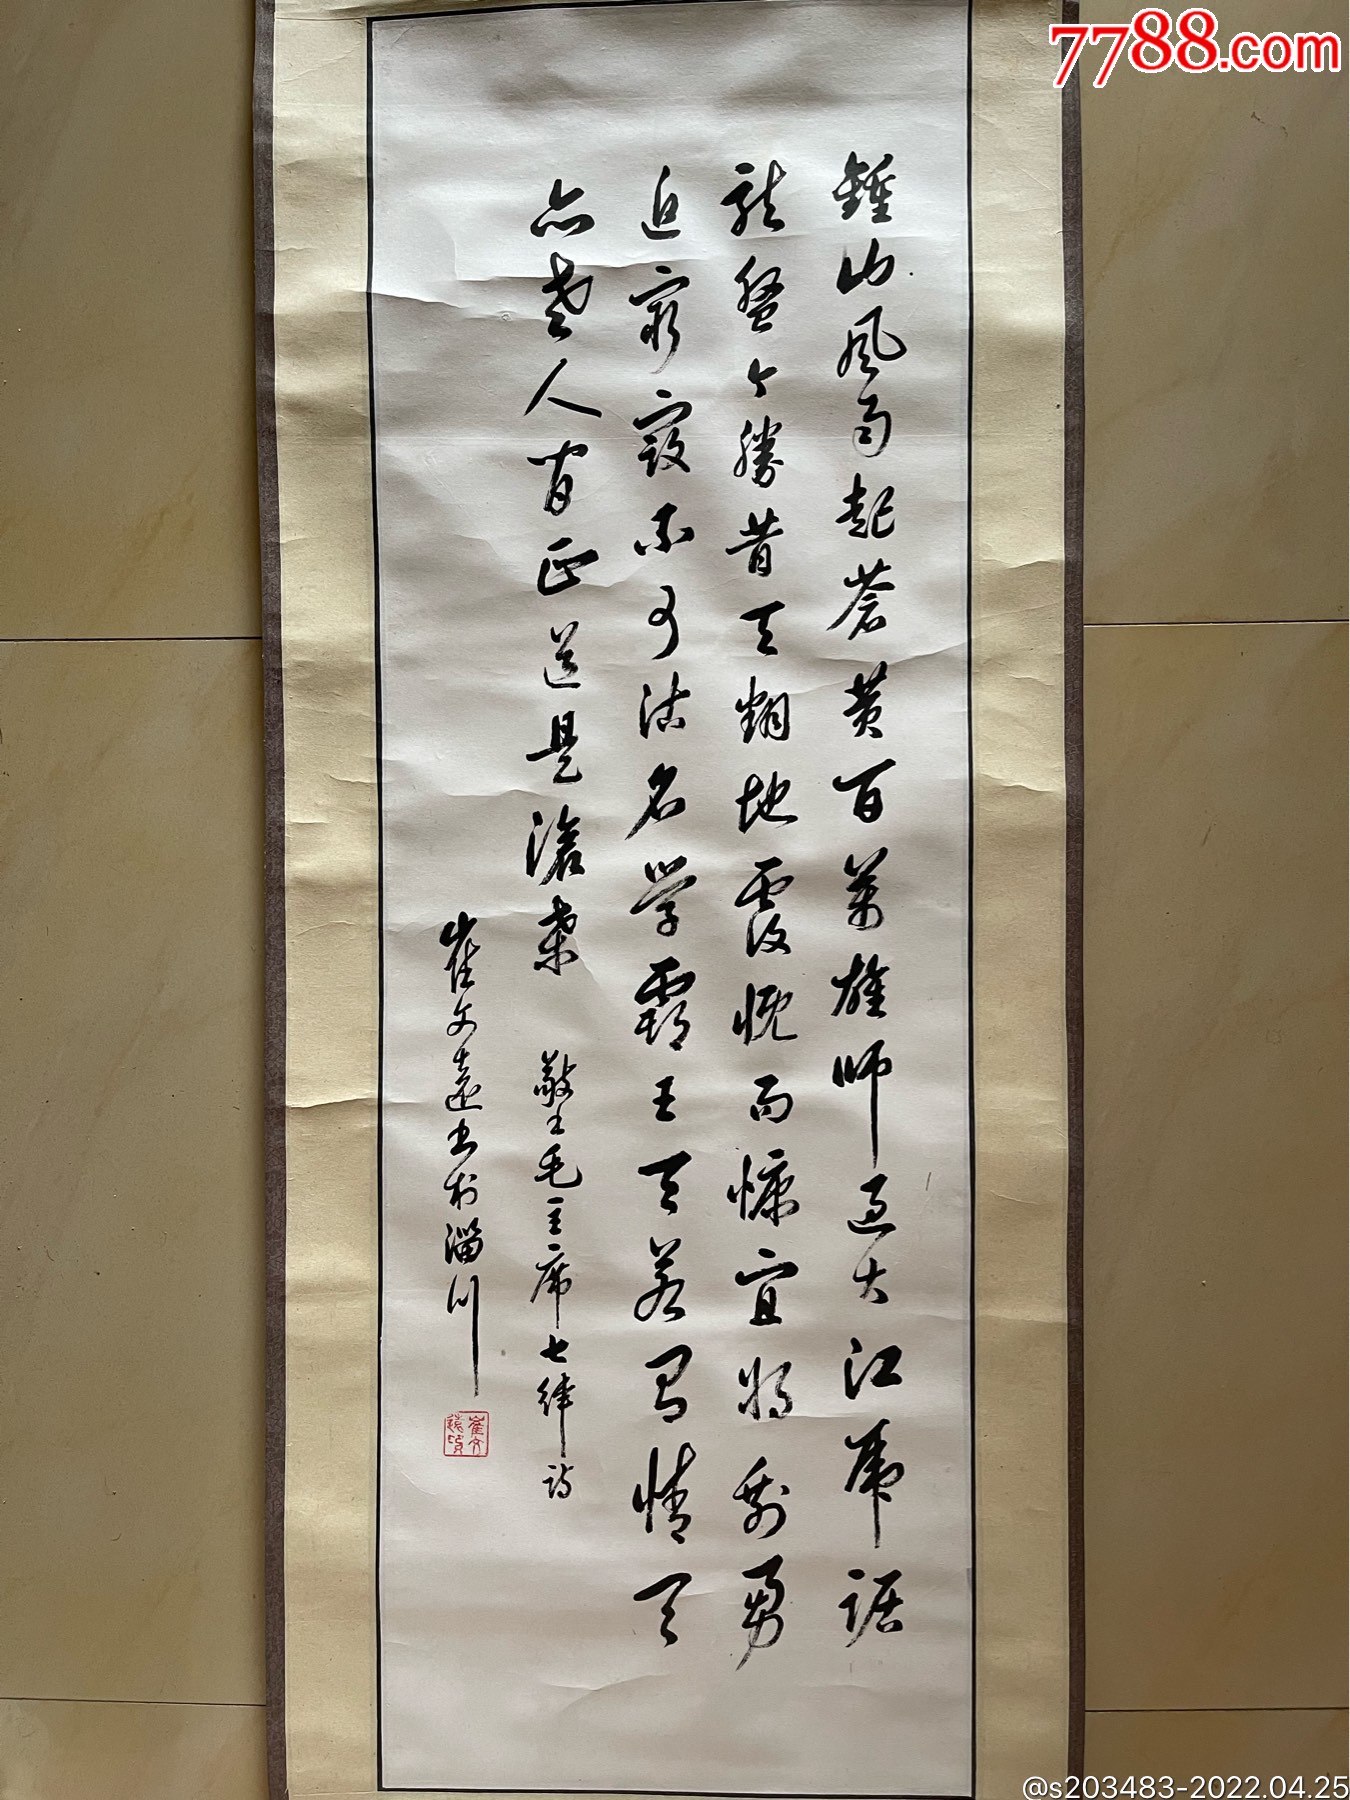 7788.com
鍾山風雨起蒼黄百萬雄師過大江虎踞
龍盤今勝昔天翻地覆慨而慷宜将剩勇
追窮寇不可沽名学霸王天若有情天
亦老人間正道是滄桑 敬毛主席七律詩
崔文遠书於淄川
崔文遠印
@s203483-2022.04.25